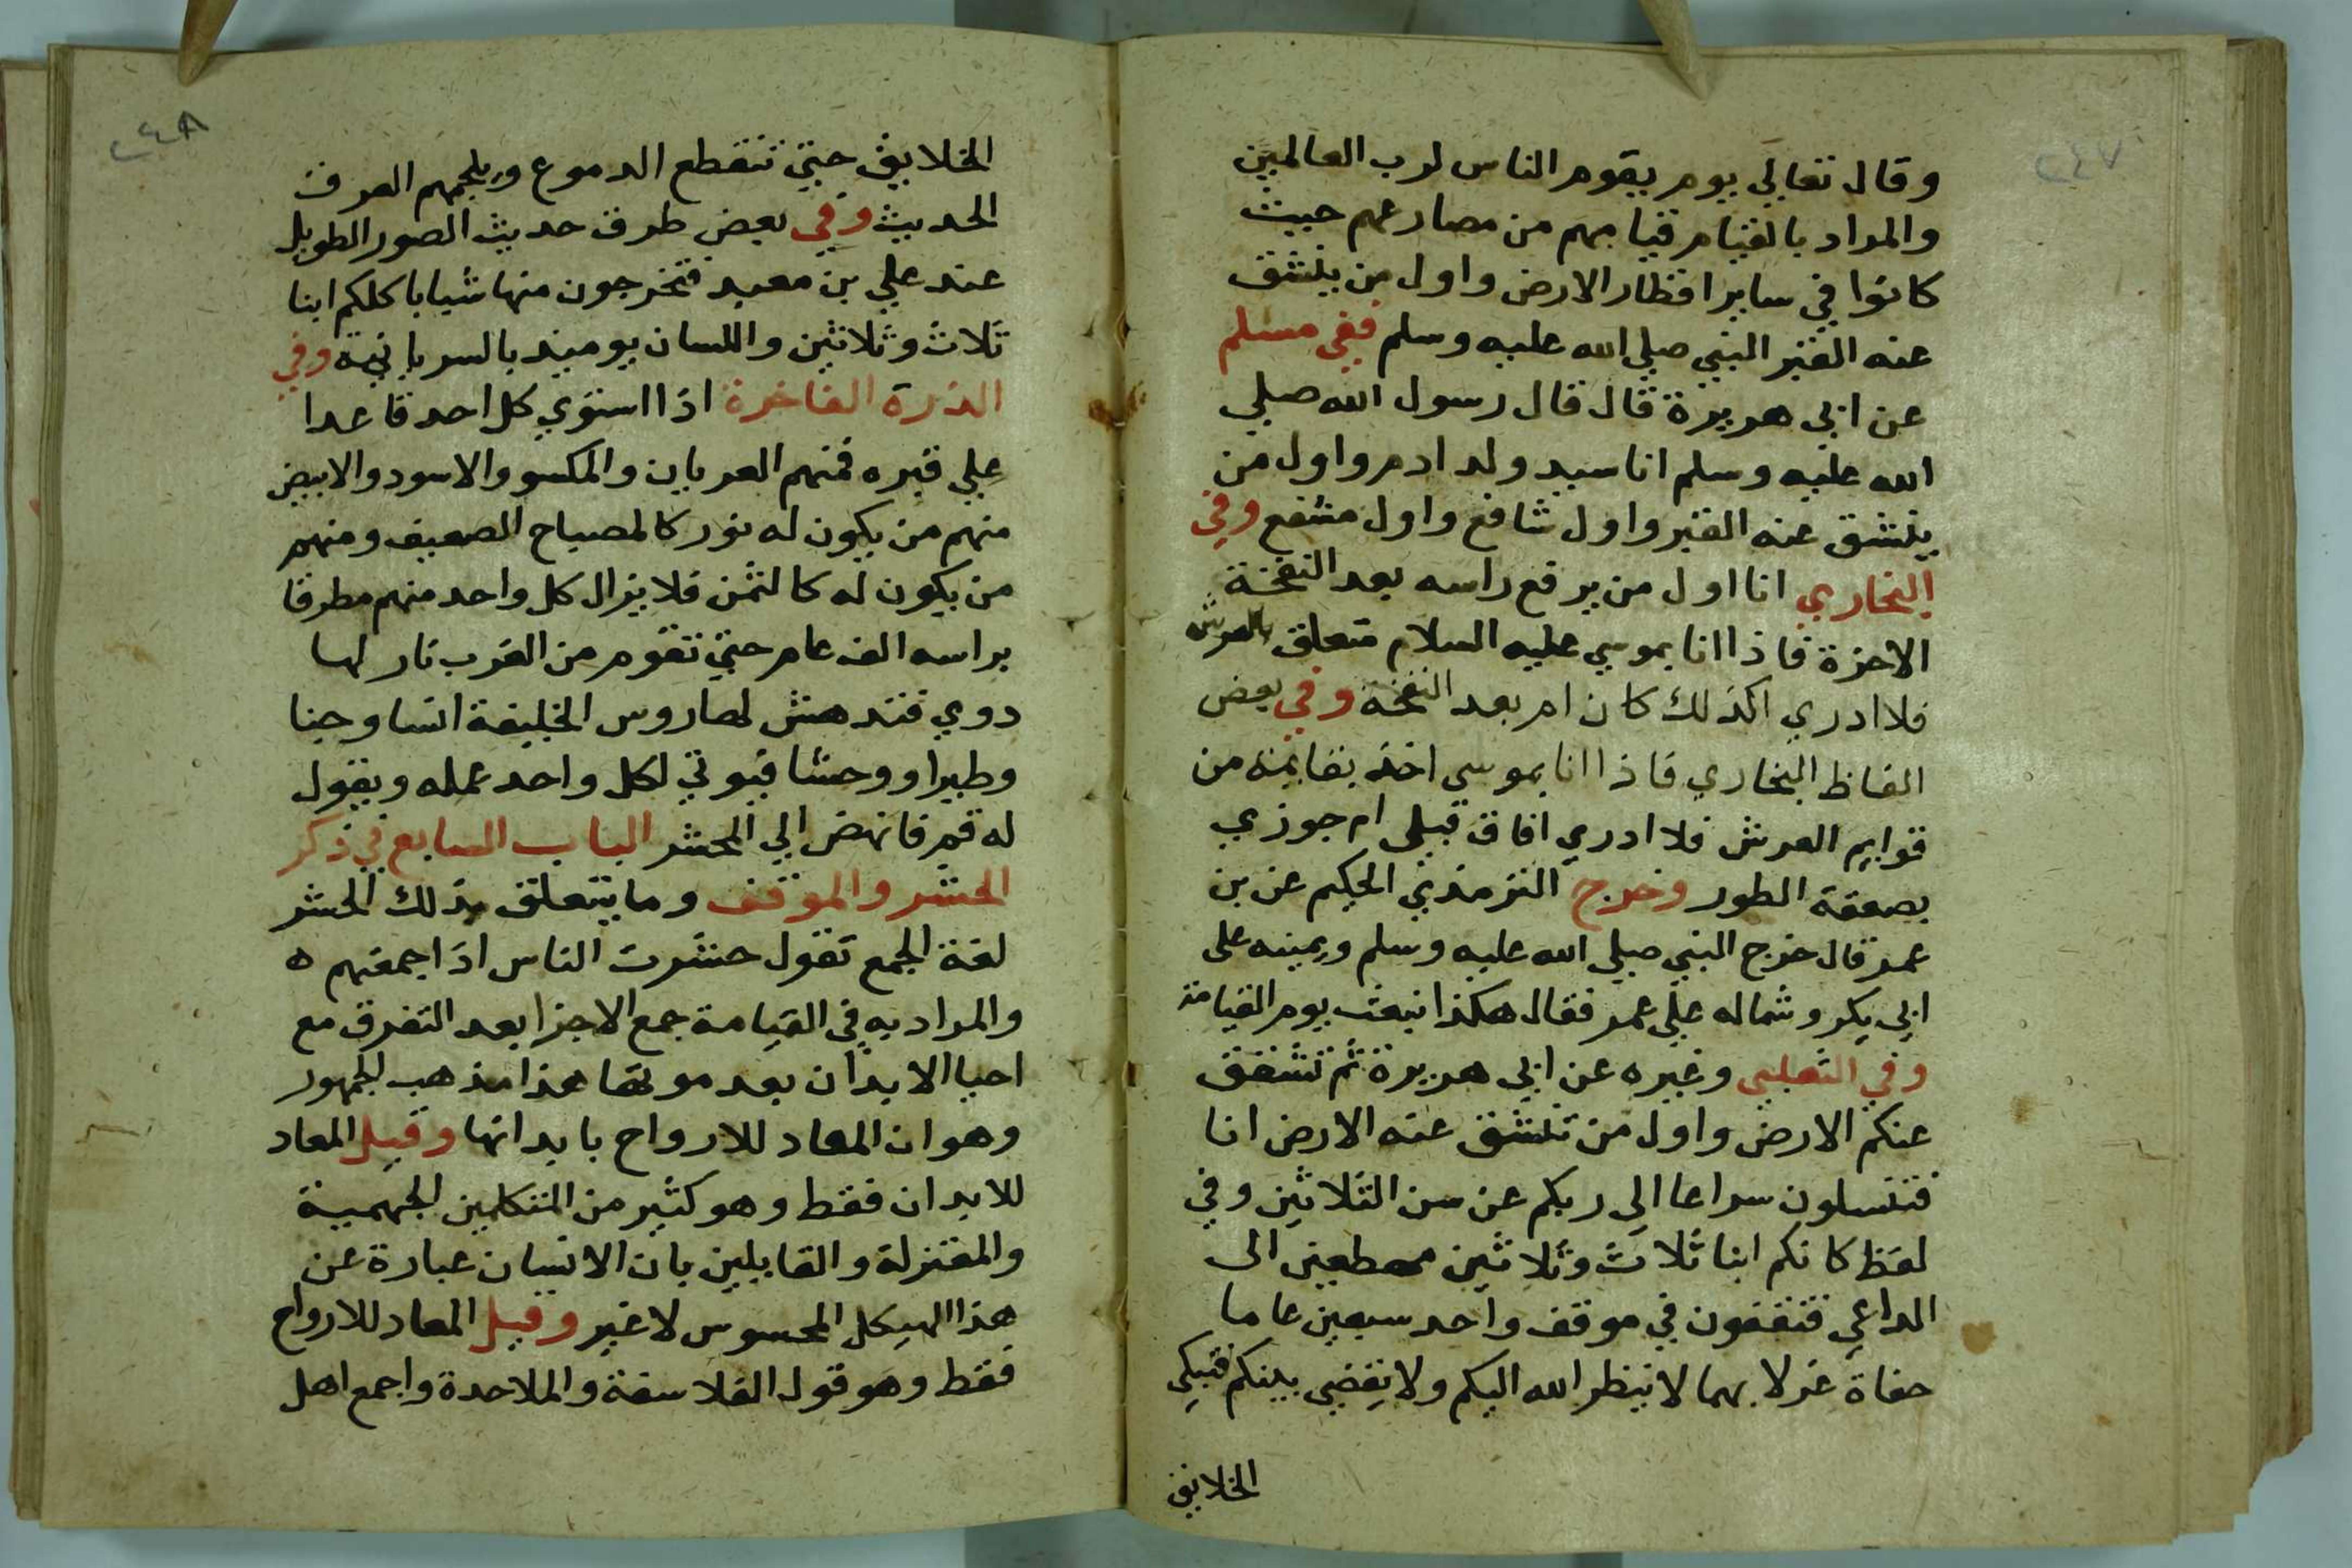 ٢٤٧
وقال تعالي يوم يقوم الناس لرب العالمين
والمراد بالقيام قيامهم من مصارعهم حيث
كانوا في ساير اقطار الارض واول من ينشق
عنه القبر النبي صلي الله عليه وسلم ففي مسلم
عن ابي هريرة قال قال رسول الله صلي
الله عليه وسلم انا سيد ولد ادم واول من
ينشق عنه القبر واول شافع واول مشفع وفي
البخاري انا اول من يرفع راسه بعد النفخة
الاخرة فاذا انا بموسي عليه السلام متعلق بالعرش
فلا ادري اكذلك كان ام بعد النفخة وفي بعض
الفاظ البخاري فاذا انا بموسي اخذ بقايمة من
قوايم العرش فلا ادري افاق قبلي ام جوزي
بصعقة الطور وخرج الترمذي الحكيم عن بن
عمر قال خرج النبي صلي الله عليه وسلم ويمينه على
ابي بكر وشماله علي عمر فقال هكذا نبعث يوم القيامة
وفي الثعلبي وغيره عن ابي هريرة ثم تشقق
عنكم الارض واول من تنشق عنه الارض انا
فتنسلون سراعا الي ربكم عن سن الثلاثين وفي
لفظ كانكم ابنا ثلاث وثلاثين مهطعين الى
الداعي فتقفون في موقف واحد سبعين عاما
حفاة غرلا بهما لا ينظر الله اليكم ولا يقضي بينكم فتبكي
الخلايق
٢٤٨
الخلايق حتي تنقطع الدموع ويلجمهم العرق
الحديث وفي بعض طرق حديث الصور الطويل
عند علي بن معبد فتخرجون منها شبابا كلكم ابنا
ثلاث وثلاثين واللسان يوميذ بالسريانية وفي
الدرة الفاخرة اذا استوي كل احد قاعدا
علي قبره فمنهم العريان والمكسو والاسود والابيض
منهم من يكون له نور كالمصباح الضعيف ومنهم
من يكون له كالشمس فلا يزال كل واحد منهم مطرقا
براسه الف عام حتي تقوم من الغرب نار لها
دوي فتدهش لها روس الخليقة انسا وجنا
وطيرا ووحشا فيوتي لكل واحد عمله ويقول
له قم فانهض الي المحشر الباب السابع في ذكر
الحشر والموقف وما يتعلق بذلك الحشر
لغة الجمع تقول حشرت الناس اذا جمعتهم ه
والمراد به في القيامة جمع الاجزا بعد التفرق مع
احيا الابدان بعد موتها هذا مذهب الجمهور
وهو ان المعاد للارواح بابدانها وقيل المعاد
للابدان فقط وهو كثير من المتكلمين الجهمية
والمعتزلة والقايلين بان الانسان عبارة عن
هذا الهيكل المحسوس لا غير وقيل المعاد للارواح
فقط وهو قول الفلاسفة والملاحدة واجمع اهل